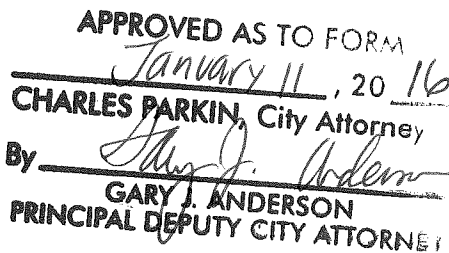 APPROVED AS TO FORM
January 11, 20 16
CHARLES PARKIN, City Attorney
By Gary J. Anderson
GARY J. ANDERSON
PRINCIPAL DEPUTY CITY ATTORNEY